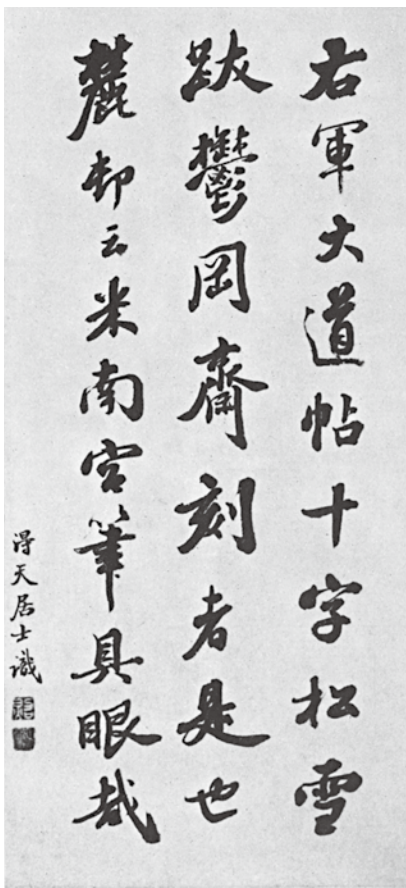 右軍大道帖十字松雪
跋鬱岡齋刻者是也
麓邨云米南宮筆具眼哉
得天居士識